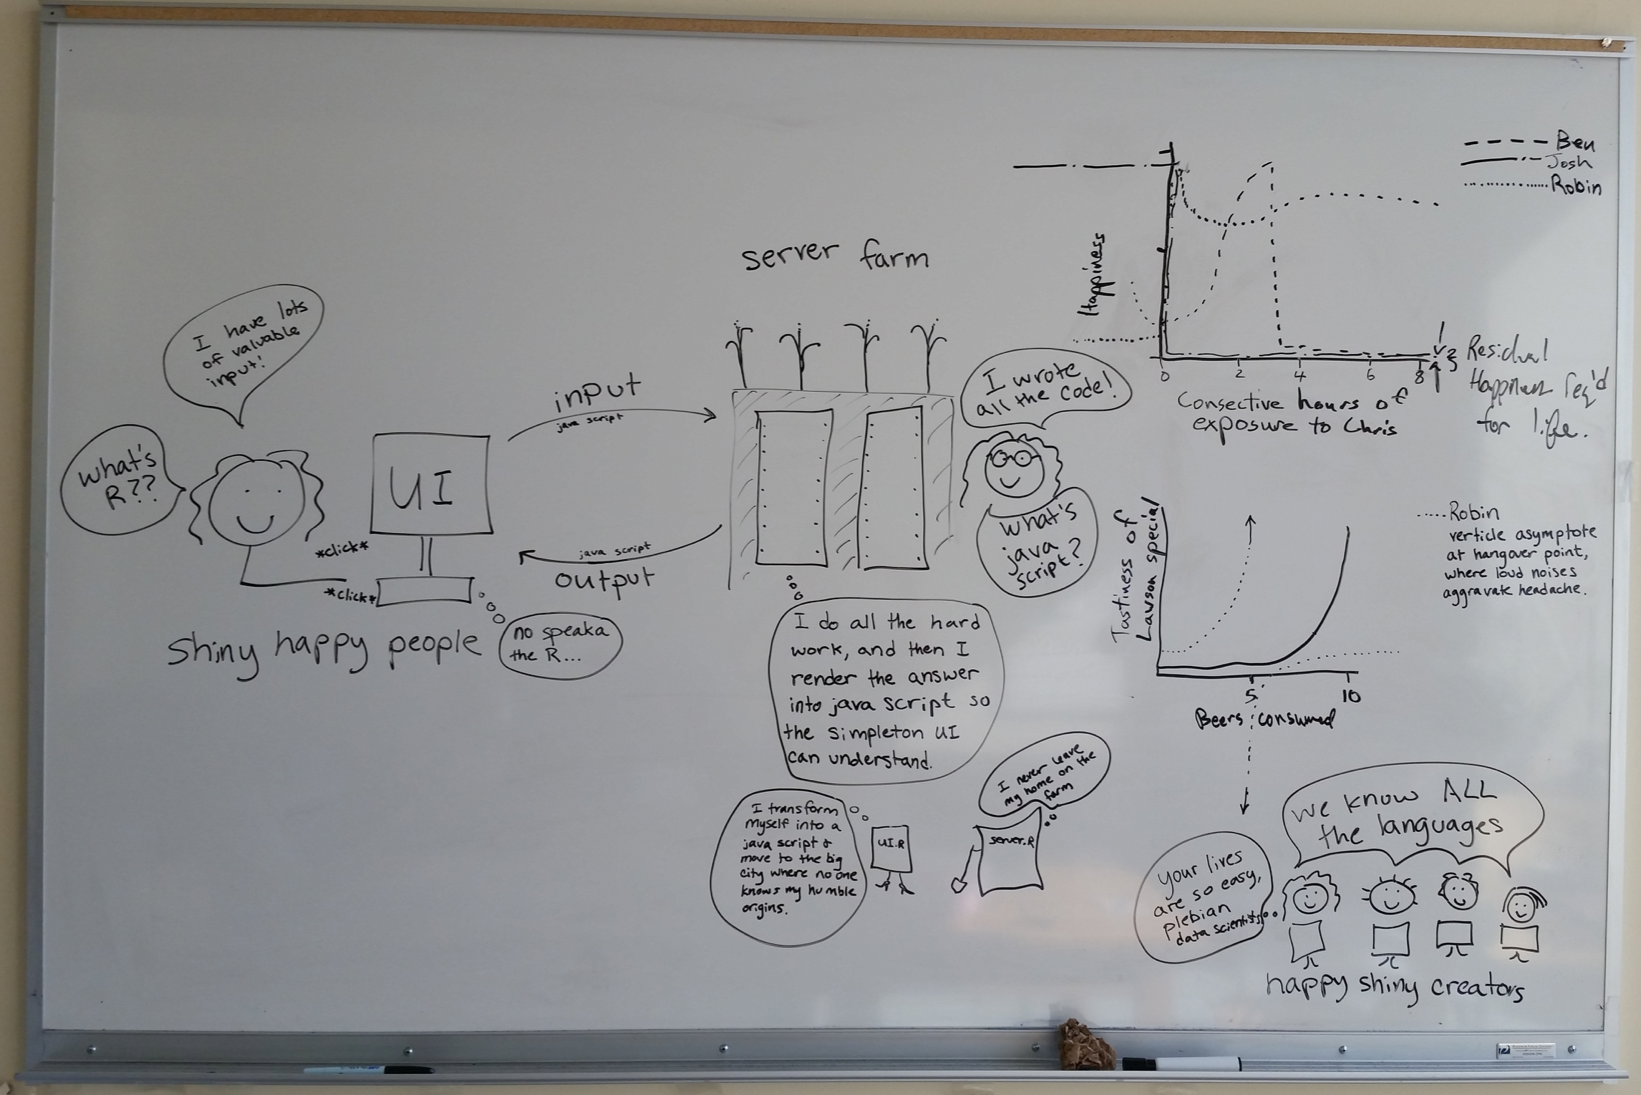 I have lots
of valuable
input!
what's
R??
UI
*click*
*click*
shiny happy people
no speaka
the R...
input
java script
java script
output
server farm
I wrote
all the code!
what's
java
script?
I do all the hard
work, and then I
render the answer
into java script so
the simpleton UI
can understand.
I transform
myself into a
java script &
move to the big
city where no one
knows my humble
origins.
UI.R
I never leave
my home on the
farm
server.R
Ben
Josh
Robin
Happiness
0 2 4 6 8
Consective hours of
exposure to Chris
Residual
Happiness req'd
for life.
Tastiness of
Lawson special
5 10
Beers consumed
Robin
verticle asymptote
at hangover point,
where loud noises
aggravate headache.
we know ALL
the languages
your lives
are so easy,
plebian
data scientists
happy shiny creators